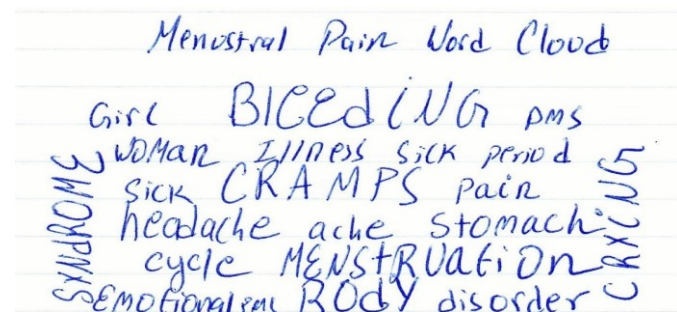 Menustral Pain Word Cloud
Girl BlEEdiNG PMS
WOMan Illness Sick period
Sick CRAMPS pain
headache ache stomach
cycle MENStRUatiOn
EMOtional BODY disorder
SYNdROME
CRYiNG